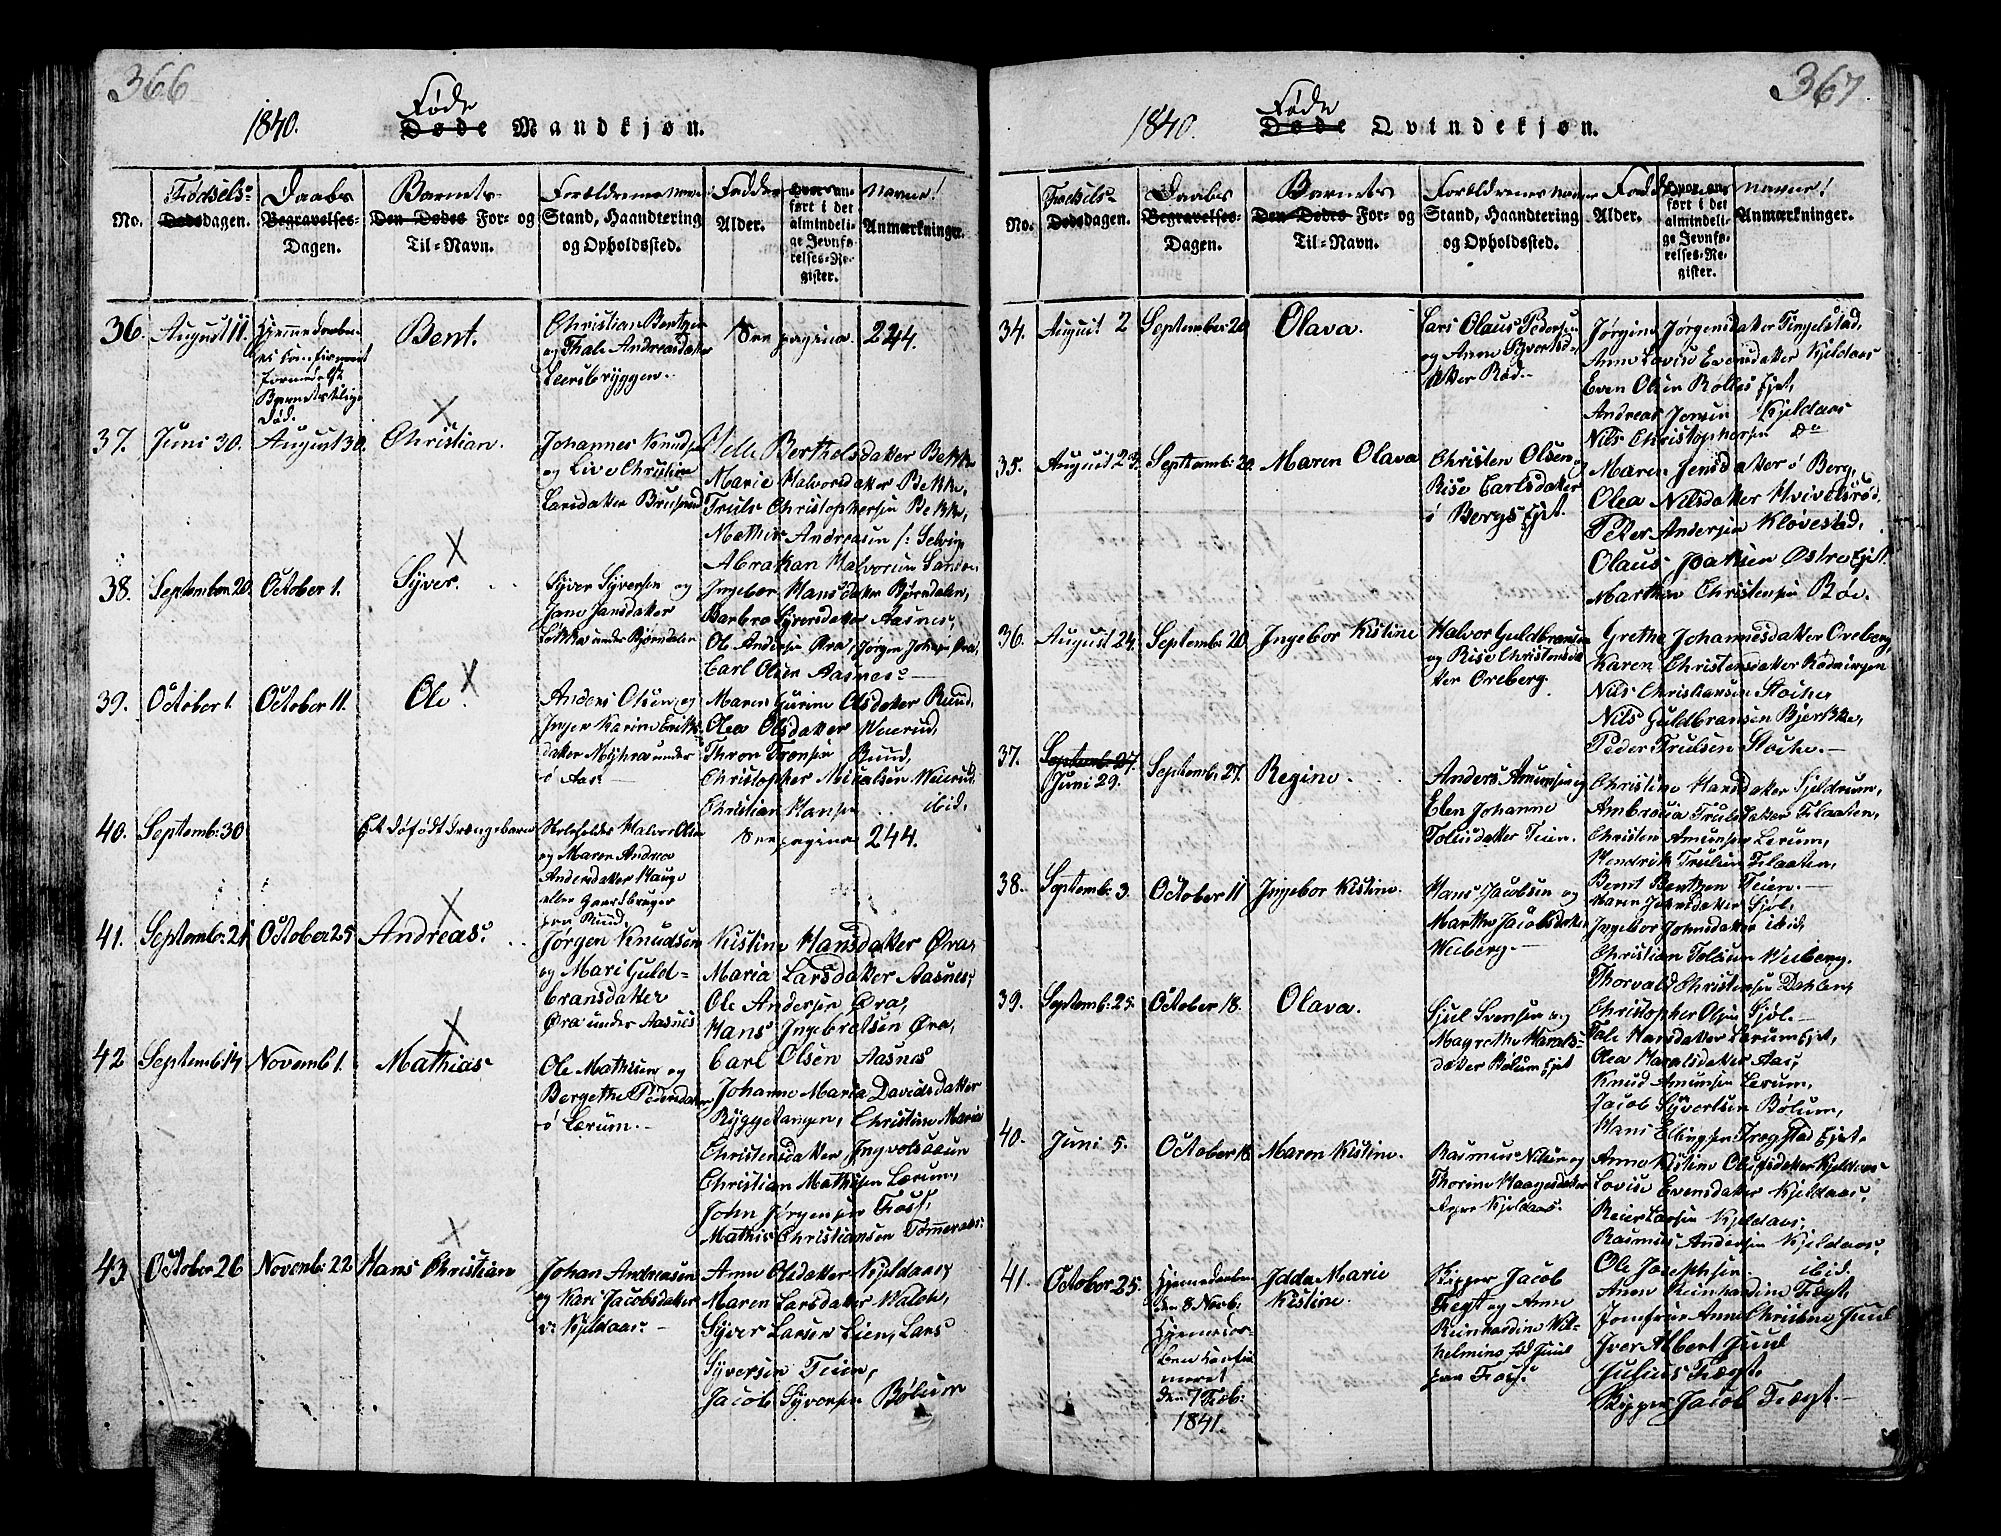 366
1840.
Føde
Døde Mandkjøn.
No.
Fødsels-
Dødsdagen.
Daabs
Begravelses-
Dagen.
Barnets
Den Dødes For- og
Til-Navn.
Forældrenes Navne
Stand, Haandtering
og Opholdssted.
Fadder
Alder.
Hvor an-
ført i det
almindeli-
ge Jevnfø-
relses-Re-
gister.
Navne!
Anmærkninger.
36.
August 11.
Hjemmedøbt
Bent.
Christian Bentzen
og Thale Andreasdatter
Leersbryggen.
See pagina 224.
Barnets
Død.
37.
Juni 30.
August 30.
Christian.
Johannes Knudsen
og Live Christine
Larsdatter
Helle Bertholsdatter Bekke,
Marie Halvorsdatter Bekke,
Truls Christophersen Bekke,
Mathis Andreasen
Abraham Halvorsen
38.
Septemb: 20.
October 1.
Syver.
Syver Syversen og
Jane Jansdatter
Løkke under Bjørndalen
Ingebor Hansdatter Bjørndalen,
Barbra Syversdatter Aasnes,
Ole Andersen Øra, Jørgen Johnsen Øra,
Carl Olsen Aasnes.
39.
October 1.
October 11.
Ole.
Anders Olsen og
Inger Karine Eriks-
datter Myhra under
Aas
Maren Gurine Olsdatter Rund,
Olea Olsdatter Weierud,
Thron Tronsen Rund,
Christopher Micalsen Weierud,
Christian Hansen ibid.
40.
Septemb: 30
Et døfødt Drengebarn
Halvor Olsen
og Maren Andrea
Andersdatter Hauge
eller Gaardbruger
paa Rund.
See pagina 244.
41.
Septemb: 21
October 25.
Andreas.
Jørgen Knudsen
og Mari Guld-
bransdatter
Øra under Aasnes
Kistine Hansdatter Øra,
Maria Larsdatter Aasnes,
Ole Andersen Øra,
Hans Ingebretsen Øra,
Carl Olsen Aasnes
42
Septemb: 14
Novemb 1.
Mathias.
Ole Mathisen og
Bergethe Pedersdatter
Lerum.
Johanne Maria Davidsdatter
Ryggetangen, Christine Maria
Christensdatter
Christian Mathisen Lærum,
John Jørgensen Foss,
Mathis Christiansen
43
October 26
Novemb: 22
Hans Christian
Johan Andreasen
og Kari Jacobsdatter
Kjeldaas.
Anne Olsdatter Kjeldaas
Maren Larsdatter
Syver Larsen Lien, Lars
Syversen Teien,
Jacob Syversen Bølum
367
1840.
Føde
Døde Qvindekjøn.
No.
Fødsels-
Dødsdagen.
Daabs
Begravelses-
Dagen.
Barnets
Den Dødes For- og
Til-Navn.
Forældrenes Navne
Stand, Haandtering
og Opholdssted.
Alder.
Hvor an-
ført i det
almindeli-
ge Jevnfø-
relses-Re-
gister.
Navne!
Anmærkninger.
34.
August 2
September 20
Olava.
Lars Olaus Pedersen
og Anne Syverts-
datter Rød.
Jørgine Jørgensdatter Tingelstad,
Anne Lovise Evensdatter Kjeldaas
Even Olsen Rolles Ejet,
Andreas Jonsen Kjeldaas
Nils Christophersen do
35.
August 23.
Septemb: 20
Maren Olava
Christen Olsen og
Rise Carlsdatter
Bergs Ejet.
Maren Jensdatter Berg,
Olea Nilsdatter Hvivelsrød,
Peter Andersen Kløvestad,
Olaus Joaksen Østre Ejet,
Marthin Christensen Bøe.
36.
August 24.
Septemb: 20
Ingebor Kistine
Halvor Guldbransen
og Rise Christensdat-
ter Oreberg.
Grethe Johannesdatter Oreberg,
Karen Christensdatter Rødningen
Nils Christiansen
Nils Guldbransen Bjerkke,
Peder Trulsen
37.
Septemb: 27.
Juni 29.
Septemb: 27.
Regine.
Anders Amunsen og
Elen Johanne
Tolisdatter Teien.
Christine Hansdatter
Ambrosia Trulsdatter Flaaten,
Christen Amunsen Lerum,
Hendrik Trulsen Flaaten,
Bernt Bentzen Teien.
38.
Septemb: 3.
October 11
Ingebor Kistine.
Hans Jacobsen og
Marthe Jacobsdatter
Weiberg.
Maren Johnsdatter Gjøl,
Ingebor Johnsdatter ibid,
Christian Tolisen Weiberg,
Thorvald Christensen Dahlen,
Christopher Olsen Gjøl.
39.
Septemb: 25.
October 18.
Olava.
Gjul Svensen og
Magrethe Harals-
datter Bølum Ejet
Tale Hansdatter Lerum Ejet,
Olea Haralsdatter Aas,
Knud Amunsen Lerum,
Jacob Syvertsen Bølum,
Hans Ellingsen Trægstad Ejet.
40.
Juni 5.
October 18.
Maren Kistine.
Rasmus Nilsen og
Thorine Haagensdatter
Kjeldaas.
Anne Kistine Olufsdatter Kjeldaas
Lovise Evensdatter Kjeldaas,
Reier Larsen Kjeldaas,
Rasmus Andersen Kjeldaas,
Ole Josephsen ibid.
41.
October 25.
Hjemmedøbt
den 8 Novb.
1841.
Idda Marie
Kistine.
Skipper Jacob
Fægt og Anne
Reinhardine Wil-
helmine fød Juul
paa Foss.
Anne Reinhardine Fægt,
Jomfrue Anne Christine Juul
Iver Albert Juul
Julius Fægt.
Skipper Jacob Fægt.